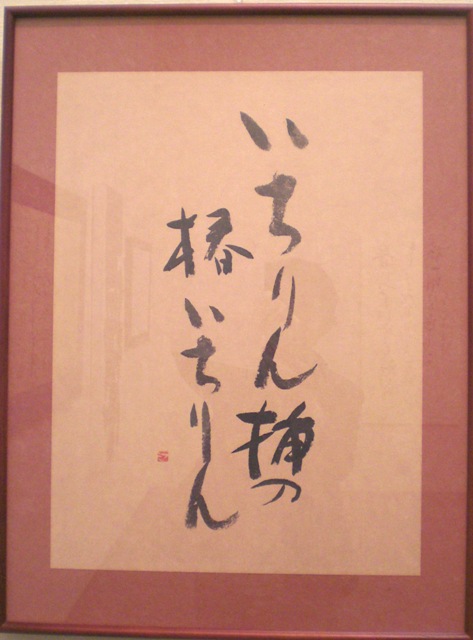 いちりん挿の
椿いちりん